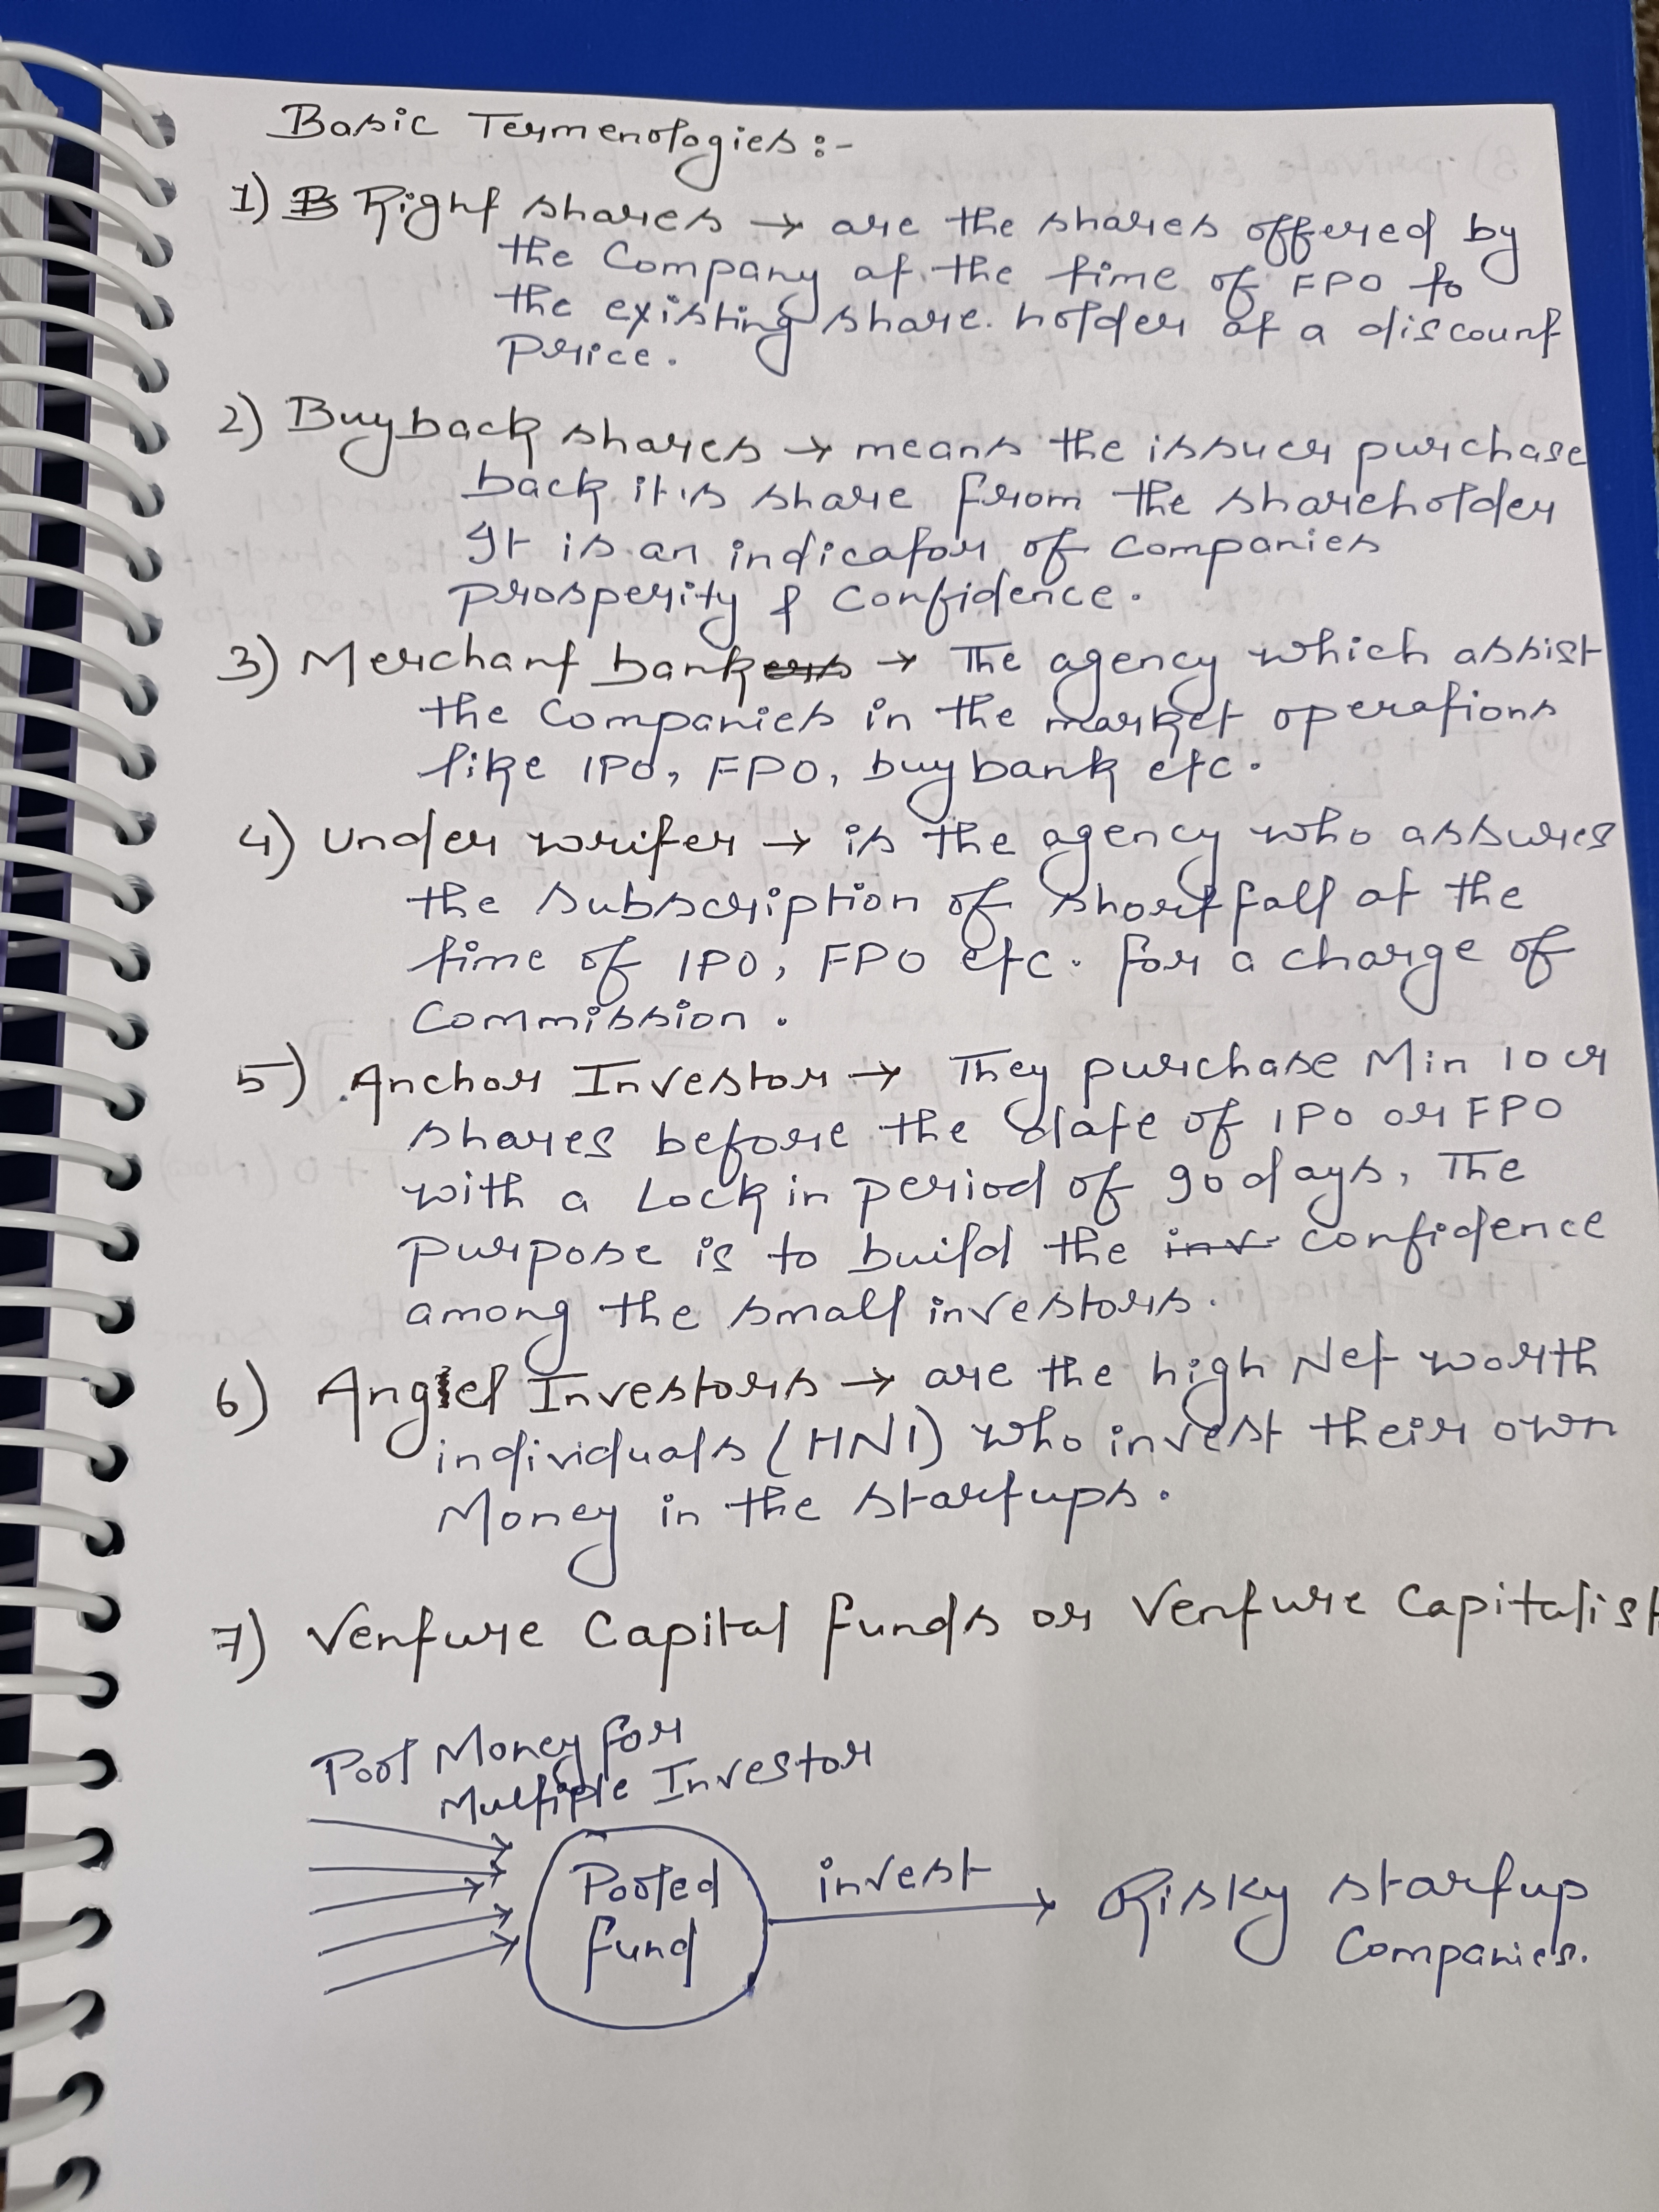 Basic Termenologies:-
1) Right shares → are the shares offered by
the Company at the time of FPO to
the existing share holder at a discount
Price.
2) Buyback shares → means the issuer purchase
back it is share from the shareholder
It is an indicator of Companies
prosperity & Confidence.
3) Merchant bank → The agency which assist
the Companies in the market operations
like IPO, FPO, buybank etc.
4) Under writer → is the agency who assures
the Subscription of Short fall at the
time of IPO, FPO etc. for a charge of
Commission.
5) Anchor Investor → They purchase Min 10 cr
shares before the date of IPO or FPO
with a Lock in period of 90 days, The
purpose is to build the inv confidence
among the small investors.
6) Angel Investors → are the high Net worth
individuals (HNI) who invest their own
Money in the startups.
7) Venture Capital funds or Venture Capitalist
Pool Money for
Multiple Investor
Pooled
fund
invest
Risky startup
Companies.